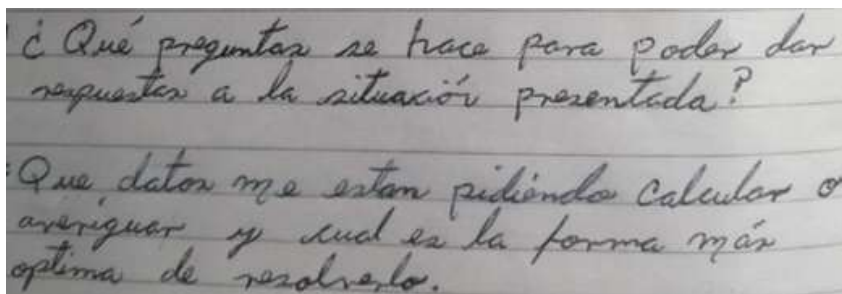 ¿Qué preguntas se hace para poder dar
respuestas a la situación presentada?
Que datos me estan pidiendo calcular o
averiguar y cual es la forma más
optima de resolverlo.